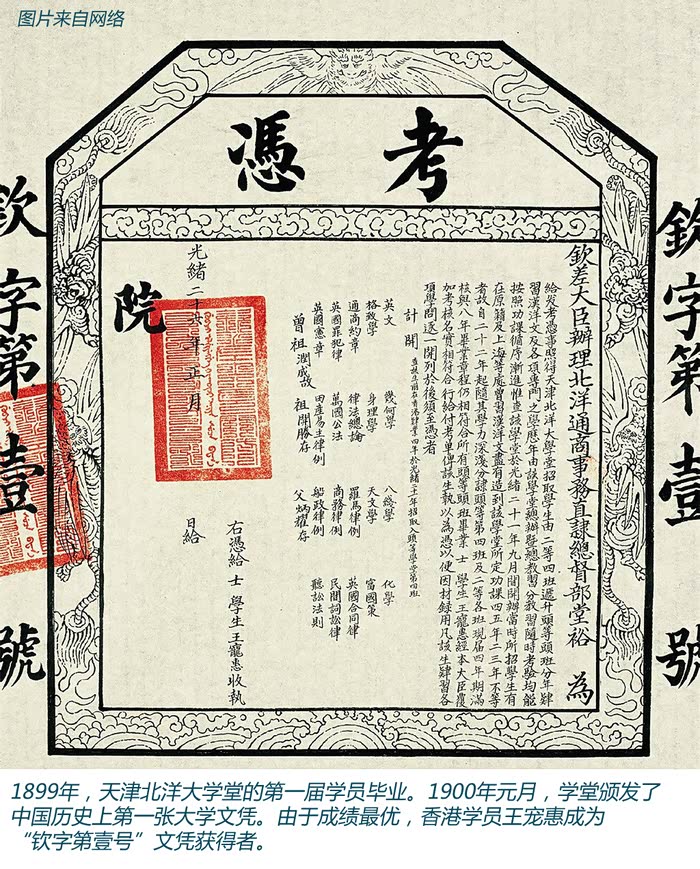 图片来自网络
考憑
欽字第壹號
欽字第壹號
欽差大臣辦理北洋通商事務直隸總督部堂裕 為
給發考憑事照得天津北洋大學堂招取學生由二等四班遞升頭等頭班分年肄
習漢洋文及各項專門之學歷年由該學堂總辦暨總教習分教習隨時考驗均能
按照功課循序漸進惟查該學堂於光緒二十一年九月間開辦當時所招學生有
在原籍及上海等處曾習漢洋文盡有造到該學堂所定功課四五年二三年不等
者故自二十二年起隨其學力深淺分隸頭等第四班及二等各班現屆四年期滿
核與八年畢業章程仍相符合所有頭等頭班畢業士學生王寵惠經本大臣覆
加考核名實相符合行給付考單俾該生執以為憑以便因材録用凡該生肄習各
項學問逐一開列於後須至憑者
計開
查該生前在香港肄業四年於光緒二十一年招取入頭等學堂第四班
英文 幾何學 八線學 化學
格致學 身理學 天文學 富國策
通商約章 律法總論 羅馬律例 英國合同律
英國罪犯律 萬國公法 商務律例 民間詞訟律
英國憲章 田產易主律例 船政律例 聽訟法則
曾祖潤成故 祖開勝存 父炳耀存
右憑給 士 學生王寵惠收執
光緒二十六年正月 日給
院
1899年，天津北洋大学堂的第一届学员毕业。1900年元月，学堂颁发了
中国历史上第一张大学文凭。由于成绩最优，香港学员王宠惠成为
“钦字第壹号”文凭获得者。